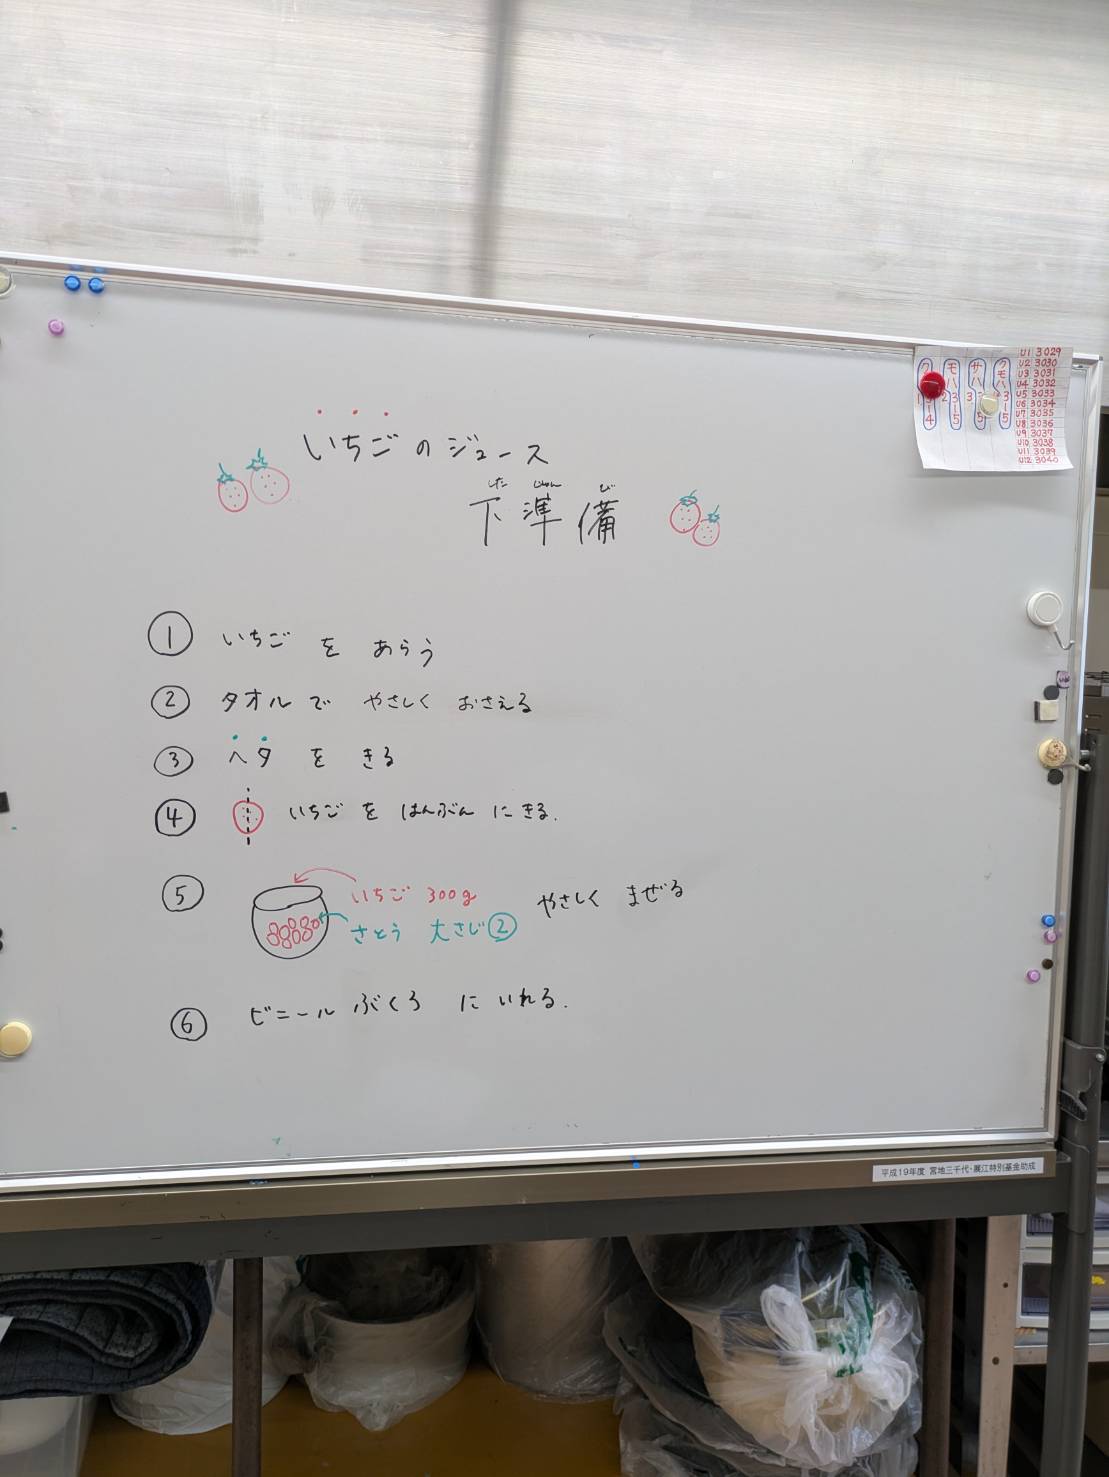 いちごのジュース
した じゅん び
下準備
① いちご を あらう
② タオル で やさしく おさえる
③ ヘタ を きる
④ いちご を はんぶん に きる.
⑤ いちご 300g やさしく まぜる
さとう 大さじ②
⑥ ビニール ぶくろ に いれる.
クモハ315
サハ
モハ315
2
3
U1 3029
U2 3030
U3 3031
U4 3032
U5 3033
U6 3034
U7 3035
U8 3036
U9 3037
U10 3038
U11 3039
U12 3040
平成19年度 宮地三千代・展江特別基金助成